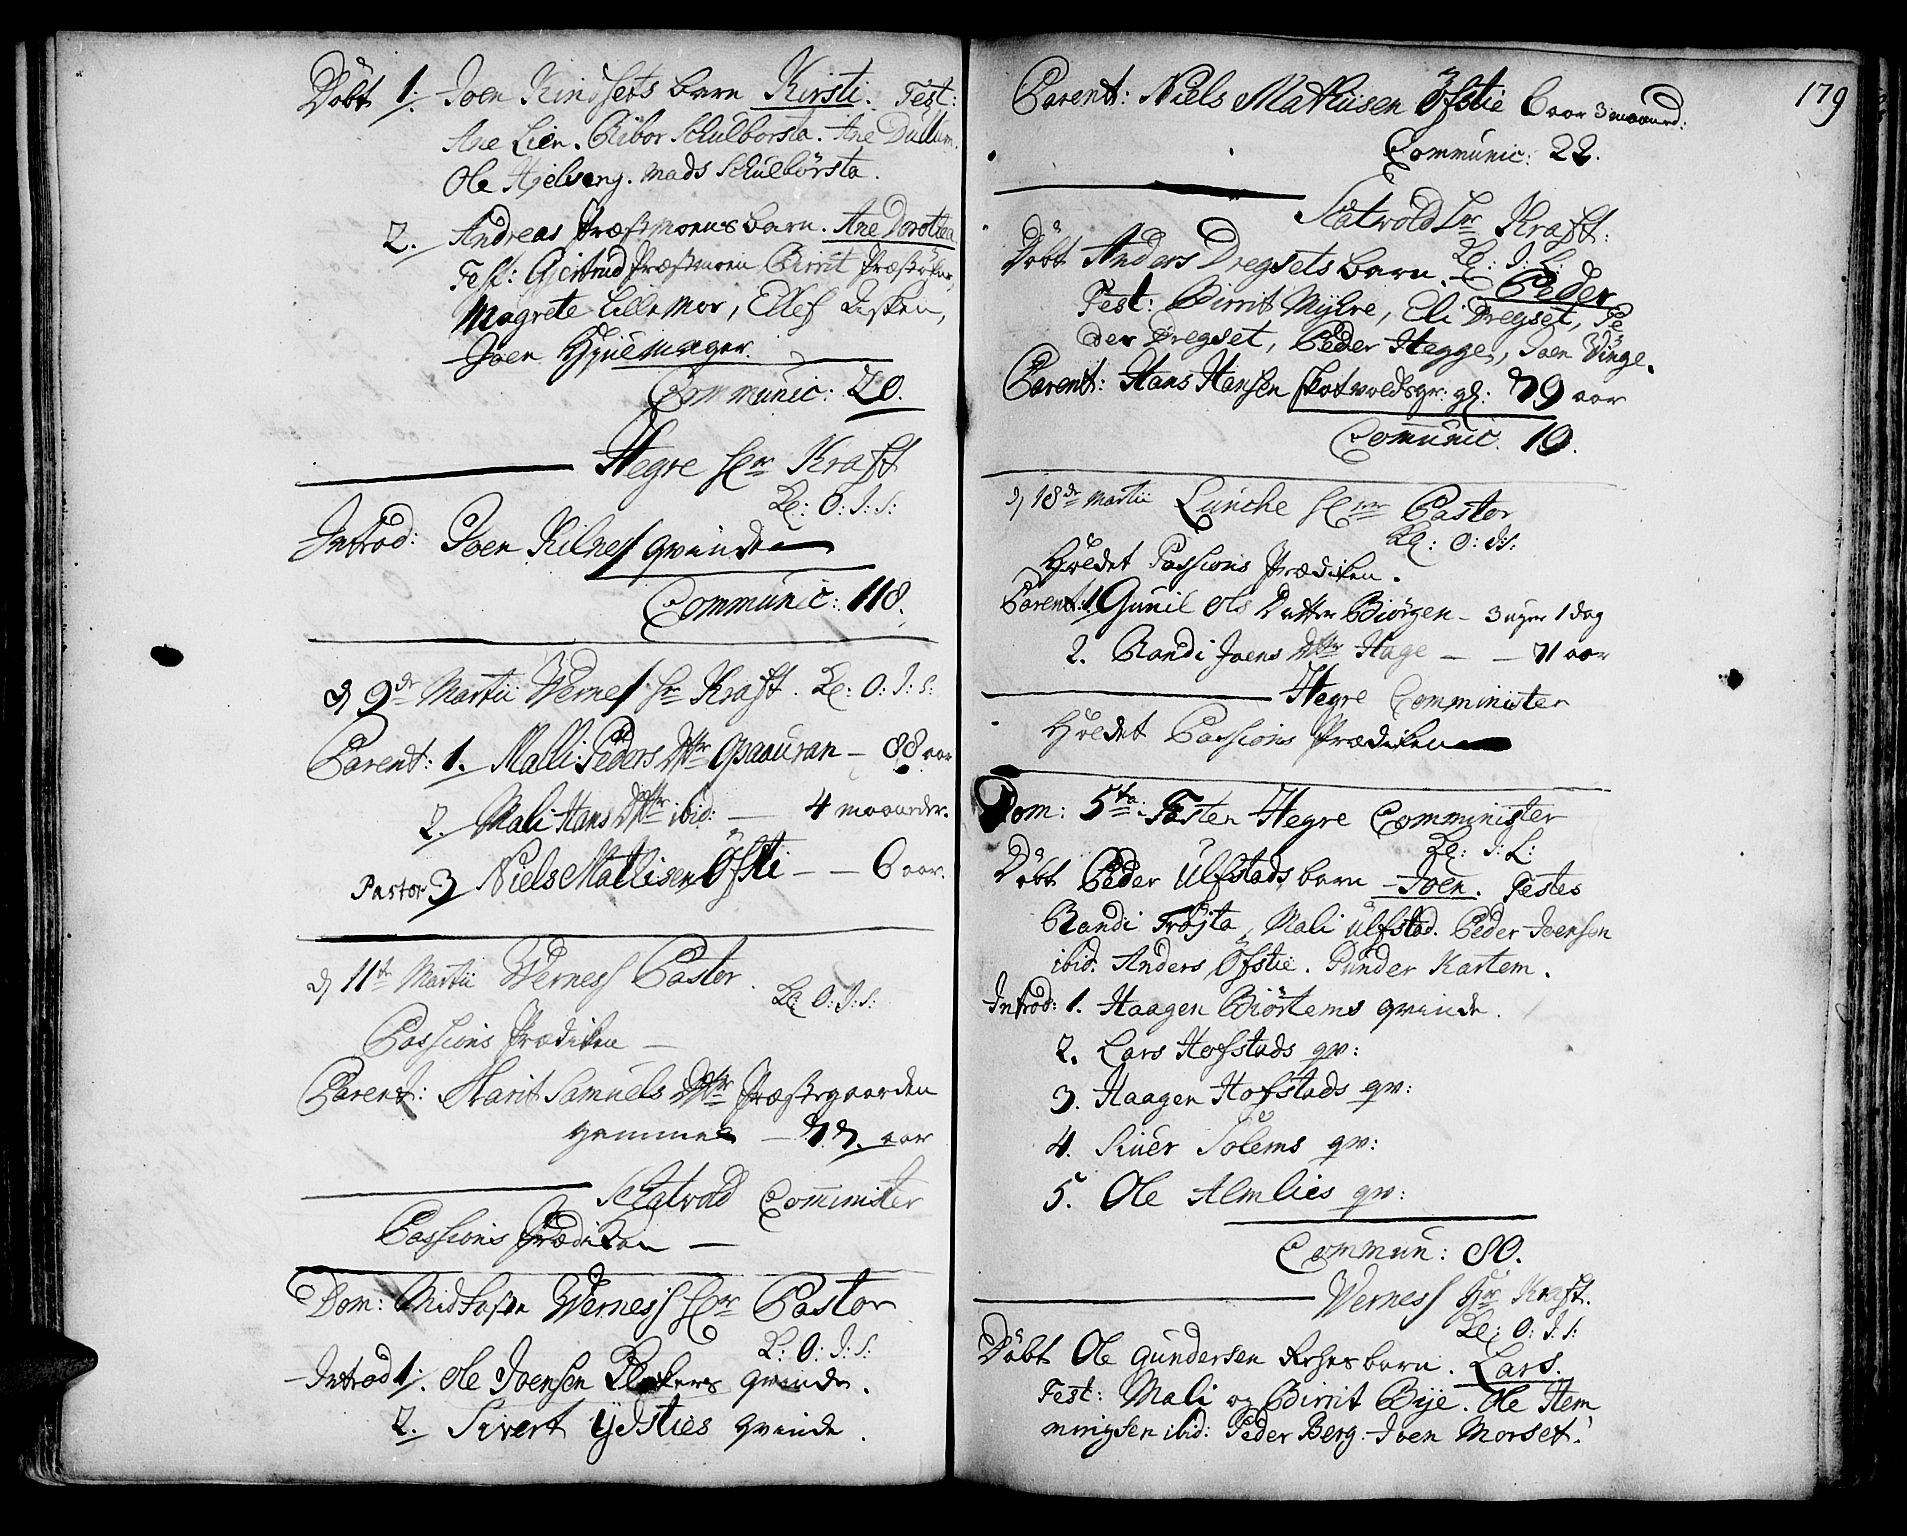 Döbt 1. Joen Kindsets barn Kirsti. Test:
Ane Lien. Ribor Schulborsta. Ane Dullum.
Ole Hjelseng. Mads Schulbörsta.
2. Andreas Præstmoens barn. Ane Dorothea
Test: Gjertrud Præstmoen Birrit
Magrete Lillemor, Ellef
Joen Hyuemager.
Communic: 20.
Hegre Hr Kraft
Kl: O: J: S:
Introd: Joen Kilnes qvinde
Communic: 118.
d 9de Martii Wernes Hr Kraft. Kl: O: J: S:
Parent: 1. Malli Peders Dttr Opauran – 88 aar
2. Mali Hans Dttr ibid: — 4 maaneder.
Pastor 3 Niels Mathisen Öfsti – – 6 aar.
d 11te Martii Werness Pastor.
Kl O: J: S:
Passions Prædiken —
Parent: Marit Samuels Dttr Præstegaarden
hjemme – 77. aar
Schatvold Comminister
Passions Prædiken —
Dom: Midfasten Werness Hr Pastor
K: O: J: S:
Introd 1. Ole Joensen qvinde.
2. Sivert Ydsties qvinde.
179
Parent: Niels Mathiisen Öfstie 6 aar 3 maaned:
Communic: 22.
Skatvold Hr Kraft:
Kl: J: L:
Döbt Anders Dregsets barn. Peder
Test: Birrit Mylre, Eli Dregset, Pe
der Dregset, Peder Hegge, Joen Vinge.
Parent: Hans Hansen Skotvoldsgr: gl: 79 aar
Communic. 19.
d 18de Martii Lunche Hr Pastor
Kl: O: J: S:
Holdet Passions Prædiken.
Parent: 1 Gunil Ols Datter Biörgen – 3 uger 1 dag
2. Randi Joens Dttr Hage – – 71 aar
Hegre Comminister
Holdet Passions Prædiken
Dom: 5ta Fasten Hegre Comminister
Kl: J: L:
Döbt Peder Ulfstads barn Joen. Testes
Randi Fröjta, Mali Ulfstad. Peder Joensen
ibid. Anders Öfstie. Gunder Kartem.
Introd: 1. Haagen Biörtems qvinde.
2. Lars Hofstads qv:
3. Haagen Hofstads qv:
4. Siuer Solems qv:
5. Ole Almlies qv:
Commun: 80.
Werness Hr Kraft.
Kl: O: J: S:
Döbt Ole Gundersen barn. Lars.
Test: Mali og Birrit Bye. Ole Hem
mingsen ibid: Peder Berg. Joen Morset.